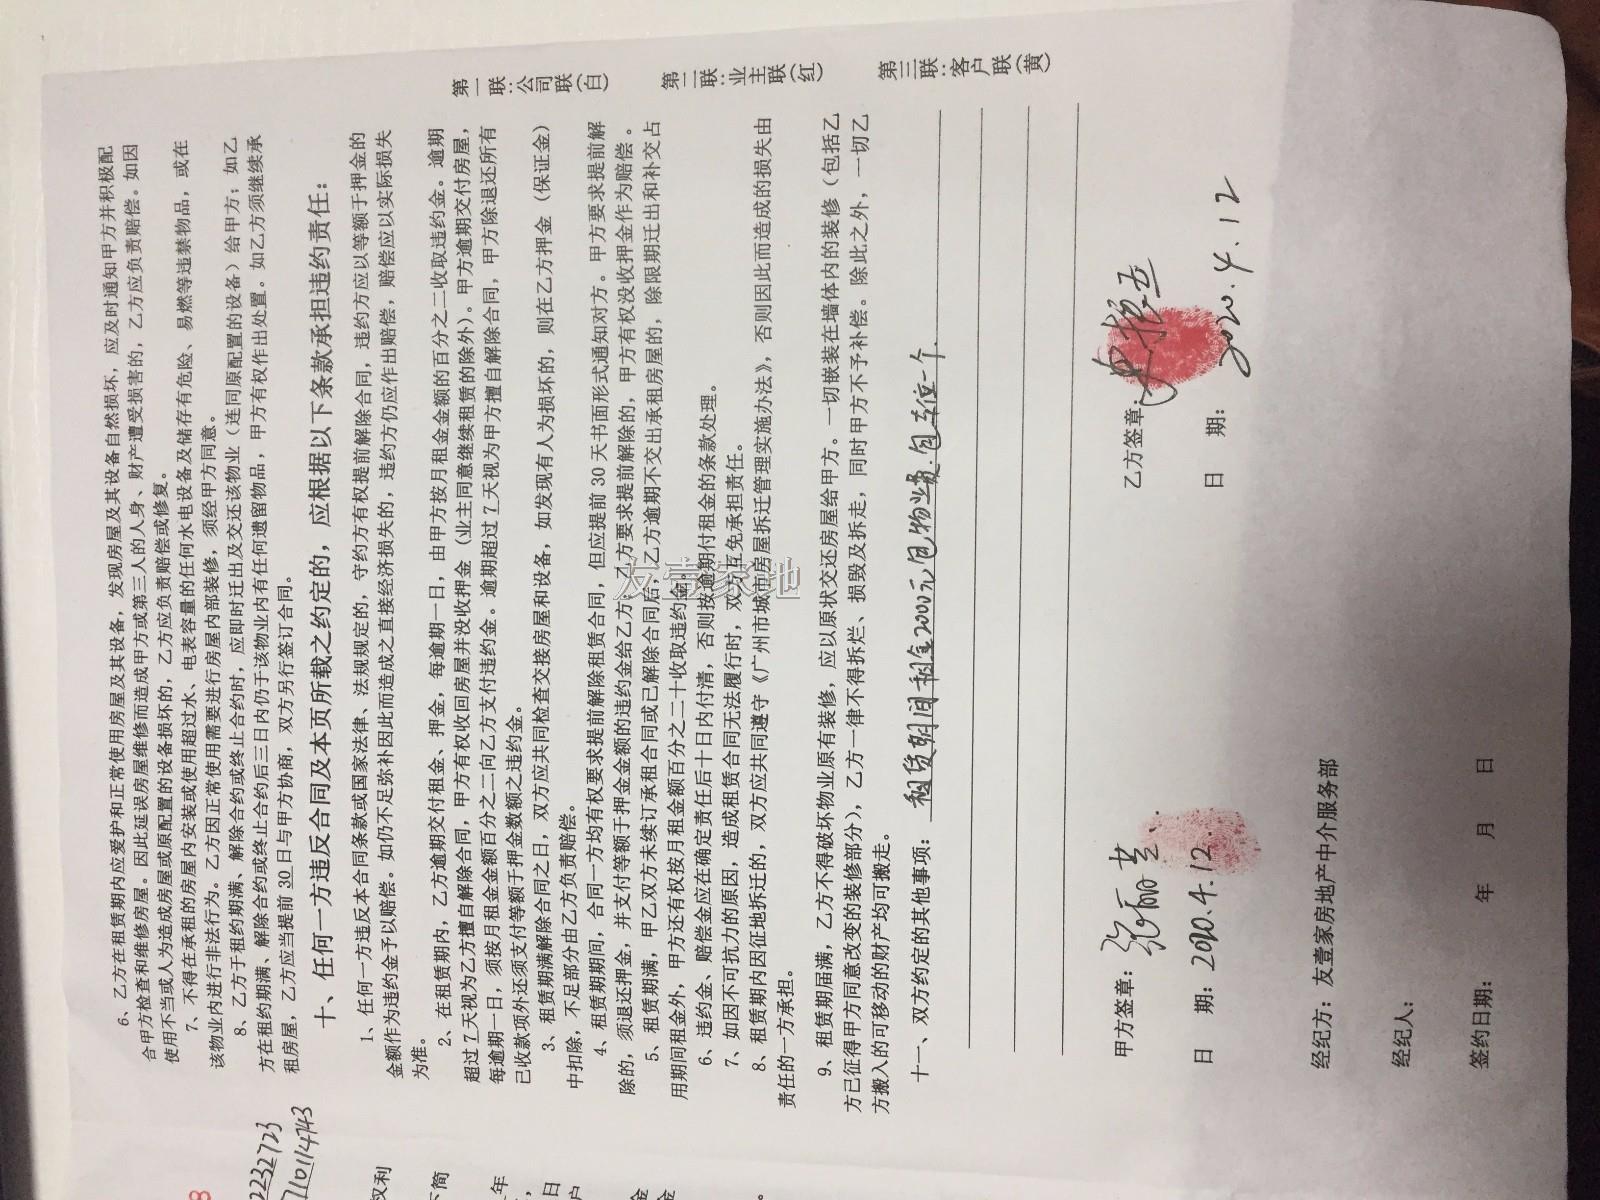 6、乙方在租赁期内应爱护和正常使用房屋及其设备，发现房屋及其设备自然损坏，应及时通知甲方并积极配
合甲方检查和维修房屋。因此延误房屋维修而造成甲方或第三人的人身、财产遭受损害的，乙方应负责赔偿。如因
使用不当或人为造成房屋或原配置的设备损坏的，乙方应负责赔偿或修复。
7、不得在承租的房屋内安装或使用超过水、电表容量的任何水电设备及储存有危险、易燃等违禁物品，或在
该物业内进行非法行为。乙方因正常使用需要进行房屋内部装修，须经甲方同意。
8、乙方于租约期满、解除合约或终止合约时，应即时迁出及交还该物业（连同原配置的设备）给甲方；如乙
方在租约期满、解除合约或终止合约后三日内仍于该物业内有任何遗留物品，甲方有权作出处置。如乙方须继续承
租房屋，乙方应当提前 30 日与甲方协商，双方另行签订合同。
十、任何一方违反合同及本页所载之约定的，应根据以下条款承担违约责任：
1、任何一方违反本合同条款或国家法律、法规规定的，守约方有权提前解除合同，违约方应以等额于押金的
金额作为违约金予以赔偿。如仍不足弥补因此而造成之直接经济损失的，违约方仍应作出赔偿，赔偿应以实际损失
为准。
2、在租赁期内，乙方逾期交付租金、押金，每逾期一日，由甲方按月租金金额的百分之二收取违约金。逾期
超过 7 天视为乙方擅自解除合同，甲方有权收回房屋并没收押金（业主同意继续租赁的除外）。甲方逾期交付房屋，
每逾期一日，须按月租金金额百分之二向乙方支付违约金。逾期超过 7 天视为甲方擅自解除合同，甲方除退还所有
已收款项外还须支付等额于押金数额之违约金。
3、租赁期满解除合同之日，双方应共同检查交接房屋和设备，如发现有人为损坏的，则在乙方押金（保证金）
中扣除，不足部分由乙方负责赔偿。
4、租赁期期间，合同一方均有权要求提前解除租赁合同，但应提前 30 天书面形式通知对方。甲方要求提前解
除的，须退还押金，并支付等额于押金金额的违约金给乙方；乙方要求提前解除的，甲方有权没收押金作为赔偿。
5、租赁期满，甲乙双方未续订承租合同或已解除合同后，乙方逾期不交出承租房屋的，除限期迁出和补交占
用期间租金外，甲方还有权按月租金额百分之二十收取违约金。
6、违约金、赔偿金应在确定责任后十日内付清，否则按逾期付租金的条款处理。
7、如因不可抗力的原因，造成租赁合同无法履行时，双方互免承担责任。
8、租赁期内因征地拆迁的，双方应共同遵守《广州市城市房屋拆迁管理实施办法》，否则因此而造成的损失由
责任的一方承担。
9、租赁期届满，乙方不得破坏物业原有装修，应以原状交还房屋给甲方。一切嵌装在墙体内的装修（包括乙
方已征得甲方同意改变的装修部分），乙方一律不得拆烂、损毁及拆走，同时甲方不予补偿。除此之外，一切乙
方搬入的可移动的财产均可搬走。
十一、双方约定的其他事项：租赁期间租金2000元包物业费.包车位一个.
甲方签章：
乙方签章：
日 期：2020.4.12.
日 期：2020.4.12
经纪方：友壹家房地产中介服务部
经纪人：
签约日期： 年 月 日
第一联：公司联（白）
第二联：业主联（红）
第三联：客户联（黄）
友壹家地
8
2232723
110114743
权利
不简